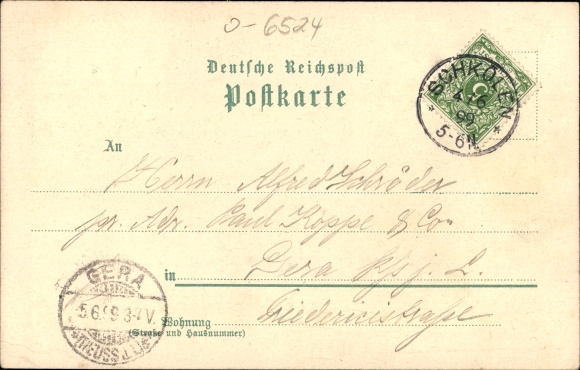 O-6524
Deutsche Reichspost
Postkarte
SCHKÖLEN
4 6
99
5-6N.
An
Herrn Alfred Schröder
pr. Adr. Paul Koppe & Co
in Gera
Wohnung
(Straße und Hausnummer)
GERA
5.6.99.3-4V.